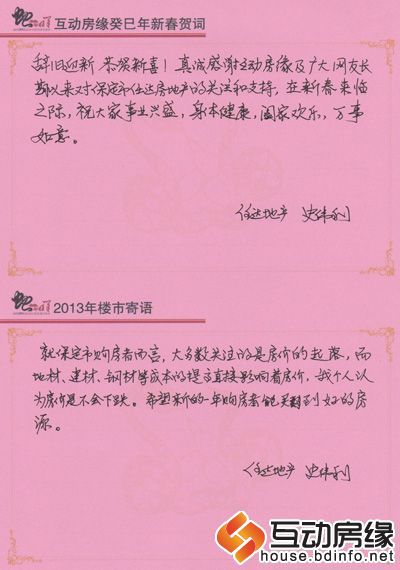 互动房缘癸巳年新春贺词
辞旧迎新 恭贺新喜！真诚感谢互动房缘及广大网友长
期以来对保定市任达房地产的关注和支持，在新春来临
之际，祝大家事业兴盛，身体健康，阖家欢乐，万事
如意。
任达地产 史伟利
2013年楼市寄语
就保定市购房者而言，大多数关注的是房价的起落，而
地材、建材、钢材等成本的提高直接影响着房价，我个人认
为房价是不会下跌。希望来的一年购房者能买到好的房
源。
任达地产 史伟利
互动房缘
house.bdinfo.net